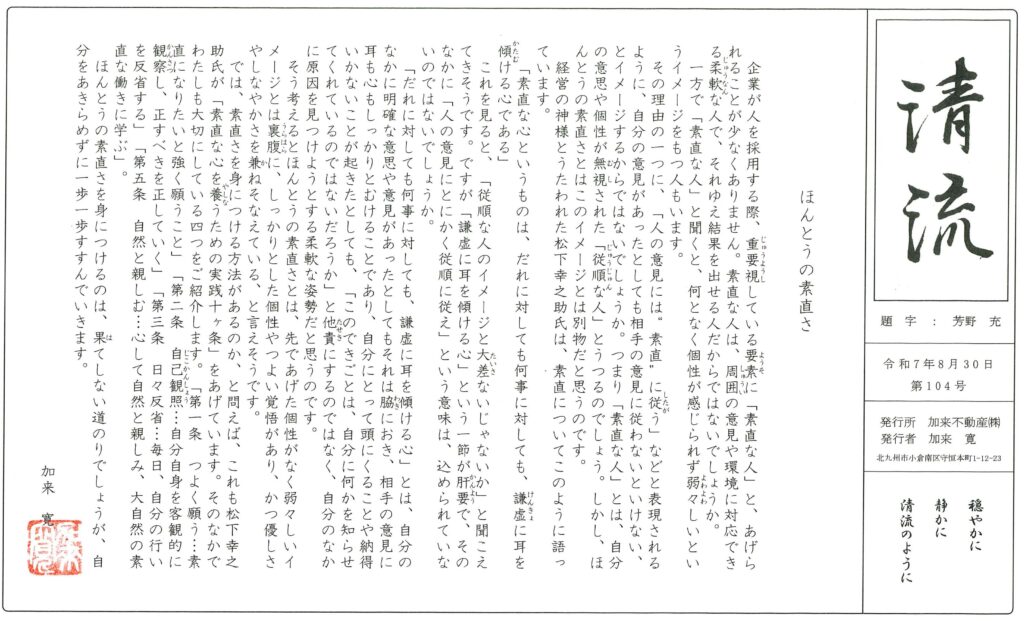 清流
題字：芳野 充
令和7年8月30日
第104号
発行所 加来不動産㈱
発行者 加来 寛
北九州市小倉南区守恒本町1-12-23
穏やかに
静かに
清流のように
ほんとうの素直さ
企業が人を採用する際、重要視している要素に「素直な人」と、あげら
れることが少なくありません。素直な人は、周囲の意見や環境に対応でき
る柔軟な人で、それゆえ結果を出せる人だからではないでしょうか。
一方で「素直な人」と聞くと、何となく個性が感じられず弱々しいとい
うイメージをもつ人もいます。
その理由の一つに、「人の意見には“素直”に従う」などと表現される
ように、自分の意見があったとしても相手の意見に従わないといけない、
とイメージするからではないでしょうか。つまり「素直な人」とは、自分
の意思や個性が無視された「従順な人」とうつるのでしょう。しかし、ほ
んとうの素直さとはこのイメージとは別物だと思うのです。
経営の神様とうたわれた松下幸之助氏は、素直についてこのように語っ
ています。
「素直な心というものは、だれに対しても何事に対しても、謙虚に耳を
傾ける心である」
これを見ると、「従順な人のイメージと大差ないじゃないか」と聞こえ
てきそうです。ですが「謙虚に耳を傾ける心」という一節が肝要で、その
なかに「人の意見にとにかく従順に従え」という意味は、込められていな
いのではないでしょうか。
「だれに対しても何事に対しても、謙虚に耳を傾ける心」とは、自分の
なかに明確な意思や意見があったとしてもそれは脇におき、相手の意見に
耳も心もしっかりとむけることであり、自分にとって頭にくることや納得
いかないことが起きたとしても、「このできごとは、自分に何かを知らせ
てくれているのではないだろうか」と他責にするのではなく、自分のなか
に原因を見つけようとする柔軟な姿勢だと思うのです。
そう考えるとほんとうの素直さとは、先であげた個性がなく弱々しいイ
メージとは裏腹に、しっかりとした個性やつよい覚悟があり、かつ優しさ
やしなやかさを兼ねそなえている、と言えそうです。
では、素直さを身につける方法があるのか、と問えば、これも松下幸之
助氏が「素直な心を養うための実践十ヶ条」をあげています。そのなかで
わたしも大切にしている四つをご紹介します。「第一条 つよく願う…素
直になりたいと強く願うこと」「第二条 自己観照…自分自身を客観的に
観察し、正すべきを正していく」「第三条 日々反省…毎日、自分の行い
を反省する」「第五条 自然と親しむ…心して自然と親しみ、大自然の素
直な働きに学ぶ」。
ほんとうの素直さを身につけるのは、果てしない道のりでしょうが、自
分をあきらめずに一歩一歩すすんでいきます。
加来 寛